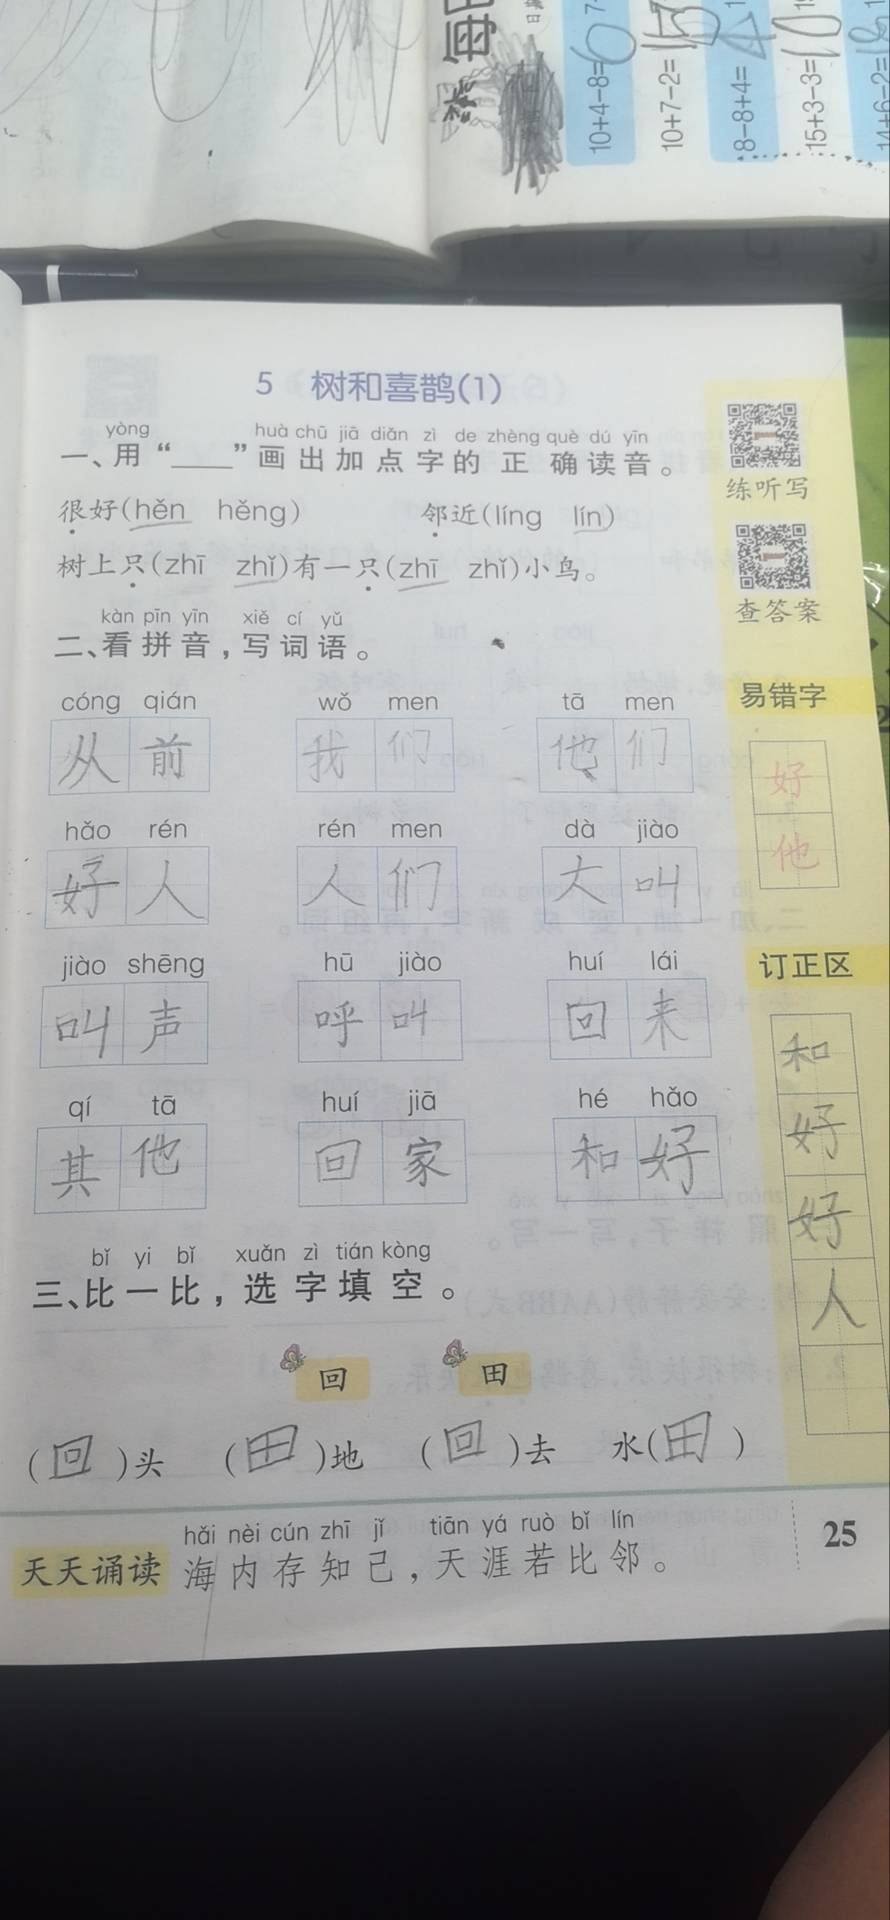 10+4-8=6
10+7-2=15
8-8+4=4
15+3-3=
14+6-2=18
5 树和喜鹊(1)
yòng huà chū jiā diǎn zì de zhèng què dú yīn
一、用“____”画出加点字的正确读音。
练听写
很好(hěn hěng) 邻近(líng lín)
树上只(zhī zhǐ)有一只(zhī zhǐ)小鸟。
查答案
kàn pīn yīn xiě cí yǔ
二、看拼音,写词语。
cóng qián wǒ men tā men
从前 我们 他们
易错字
好
他
hǎo rén rén men dà jiào
好人 人们 大叫
jiào shēng hū jiào huí lái
叫声 呼叫 回来
订正区
和
好
好
人
qí tā huí jiā hé hǎo
其他 回家 和好
bǐ yi bǐ xuǎn zì tián kòng
三、比一比,选字填空。
回 田
(回)头 (田)地 (回)去 水(田)
25
hǎi nèi cún zhī jǐ tiān yá ruò bǐ lín
天天诵读 海内存知己,天涯若比邻。